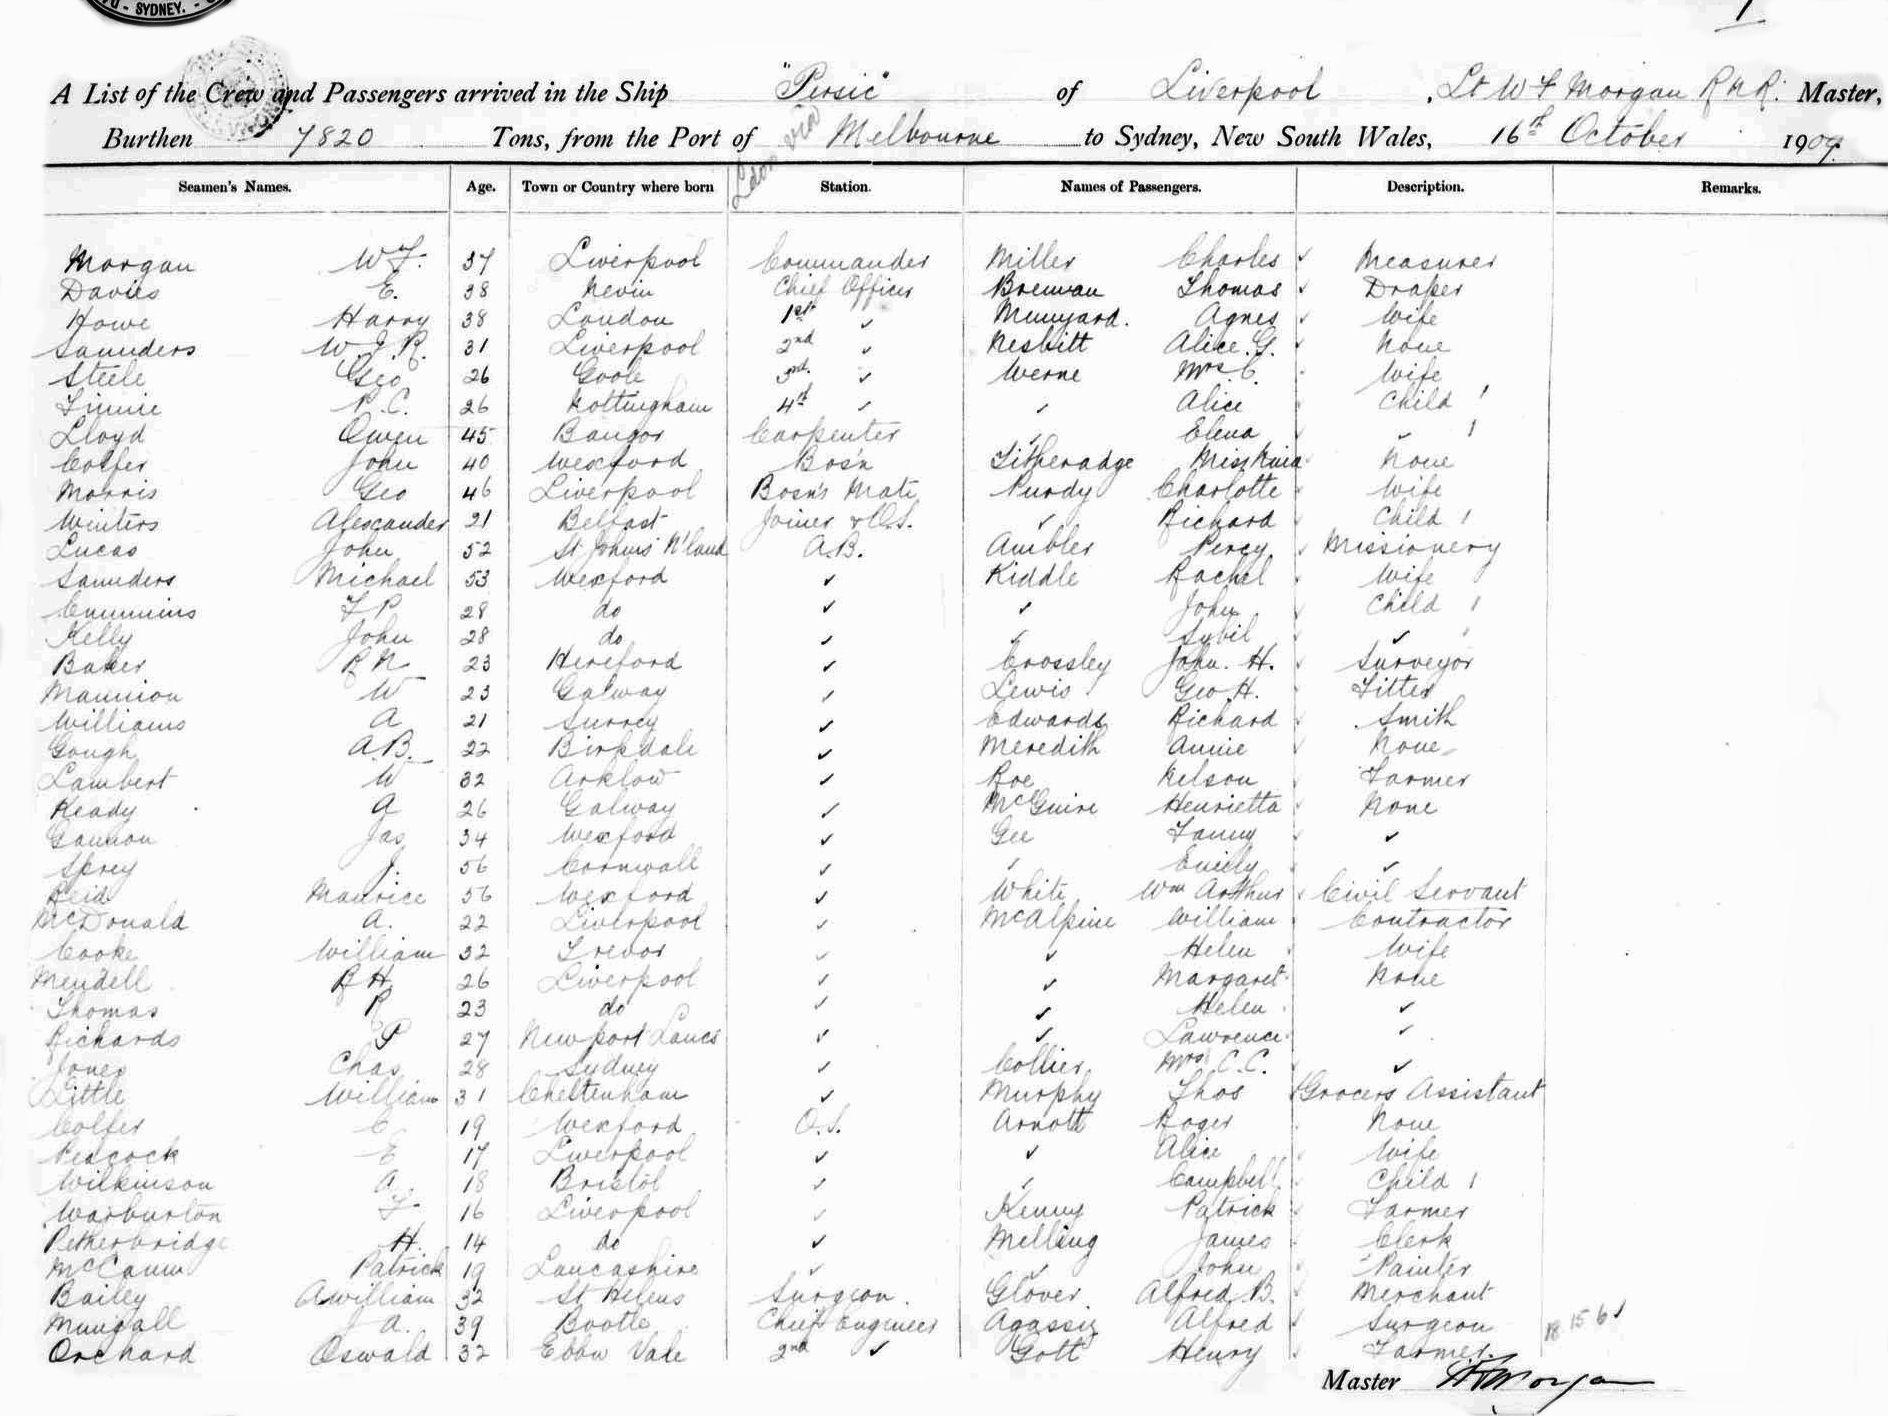 - SYDNEY. -
1
A List of the Crew and Passengers arrived in the Ship "Persic" of Liverpool, Lt W F Morgan R N R. Master,
Burthen 7820 Tons, from the Port of Ldon via Melbourne to Sydney, New South Wales, 16th October 1909.
Seamen's Names. Age. Town or Country where born Station. Names of Passengers. Description. Remarks.
Morgan W F. 37 Liverpool Commander Miller Charles ✓ Measurer
Davies E. 38 Nevin Chief Officer Brennan Thomas ✓ Draper
Howe Harry 38 London 1st ✓ Munyard. Agnes ✓ Wife
Saunders W J. R. 31 Liverpool 2nd ✓ Nesbitt Alice. G. ✓ None
Steele Geo 26 Goole 3rd. ✓ Werne Mrs C. Wife
P. C. 26 Nottingham 4th ✓ ✓ Alice Child 1
Lloyd Owen 45 Bangor Carpenter ✓ Elena ✓ 1
Colfer John 40 Wexford Bos'n Titheradge Miss None
Morris Geo 46 Liverpool Bosn's Mate Purdy Charlotte Wife
Winters Alexander 21 Belfast Joiner & A.S. ✓ Richard Child 1
Lucas John 52 St Johns N'land A.B. Ambler Percy ✓ Missionery
Saunders Michael 53 Wexford ✓ Kiddle Rachel Wife
Cummins F P. 28 do ✓ ✓ John Child 1
Kelly John 28 do ✓ ✓ Sybil ✓
Baker R N 23 Hereford ✓ Crossley John. H. Surveyor
Mannion W 23 Galway ✓ Lewis Geo H. Fitter
Williams A 21 Surrey ✓ Edwards Richard ✓ Smith
Gough A.B. 22 Birkdale ✓ Meredith Annie None
Lambert W 32 Arklow ✓ Roe Nelson Farmer
Ready A 26 Galway ✓ McGuire Henrietta ✓ None
Gannon Jas 34 Wexford ✓ Gee Fanny ✓ ✓
Sprey J. 56 Cornwall ✓ ✓ Emily ✓
Reid Maurice 56 Wexford ✓ White Wm Arthur ✓ Civil Servant
McDonald A. 22 Liverpool ✓ McAlpine William Contractor
Cooke William 32 Trevor ✓ ✓ Helen Wife
Mendell R H 26 Liverpool ✓ ✓ Margaret None
Thomas R 23 do ✓ ✓ Helen ✓
Richards P 27 Newport Lancs ✓ ✓ Lawrence ✓
Jones Chas 28 Sydney ✓ Collier Mrs C. C. ✓
Little William 31 Cheltenham ✓ Murphy Thos Grocers Assistant
Colfer C 19 Wexford O.S. Arnott Roger None
Peacock E 17 Liverpool ✓ ✓ Alice Wife
Wilkinson A 18 Bristol ✓ ✓ Campbell Child 1
Warburton F 16 Liverpool ✓ Kenny Patrick Farmer
Petherbridge H. 14 do ✓ Melling James Clerk
McCann Patrick 19 Lancashire ✓ ✓ John Painter
Bailey A William 32 St Helens Surgeon. Glover Alfred. B. Merchant
Mungall A. 39 Bootle Chief Engineer Agassiz Alfred ✓ Surgeon
Orchard Oswald 32 Ebbw Vale 2nd ✓ Gott Henry Farmer.
18 15 6 1
Master W F Morgan